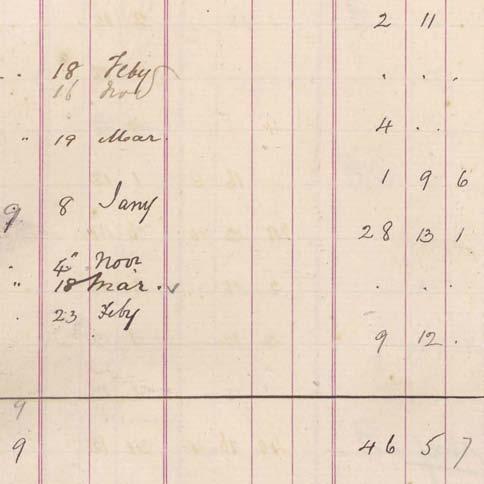 2 11
18 Feby . . .
16 Nov
" 19 Mar. 4 . .
1 9 6
9 8 Jany
28 13 1
4" Novr
" 18 Mar. ✓ . . .
. 23 Feby
9 12 .
9
9 46 5 7